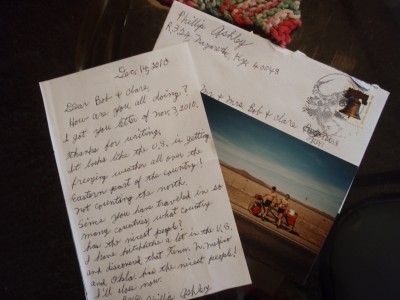 Phillip Ashley
Nazareth, Ky, 40048
Mr & Mrs Bob & Clare
Dec 14, 2010
Dear Bob & Clare,
How are you all doing?
I got you letter of Nov. 7, 2010,
thanks for writing.
It looks like the U.S. is getting
freezing weather all over the
Eastern part of the country!
Not counting the north.
Since you have traveled in so
many countries, what country
has the nicest people?
I have hitchhike a lot in the U.S.
and discovered that Tenn. N. Mexico
and Okla. has the nicest people!
I'll close now.
Phillip Ashley